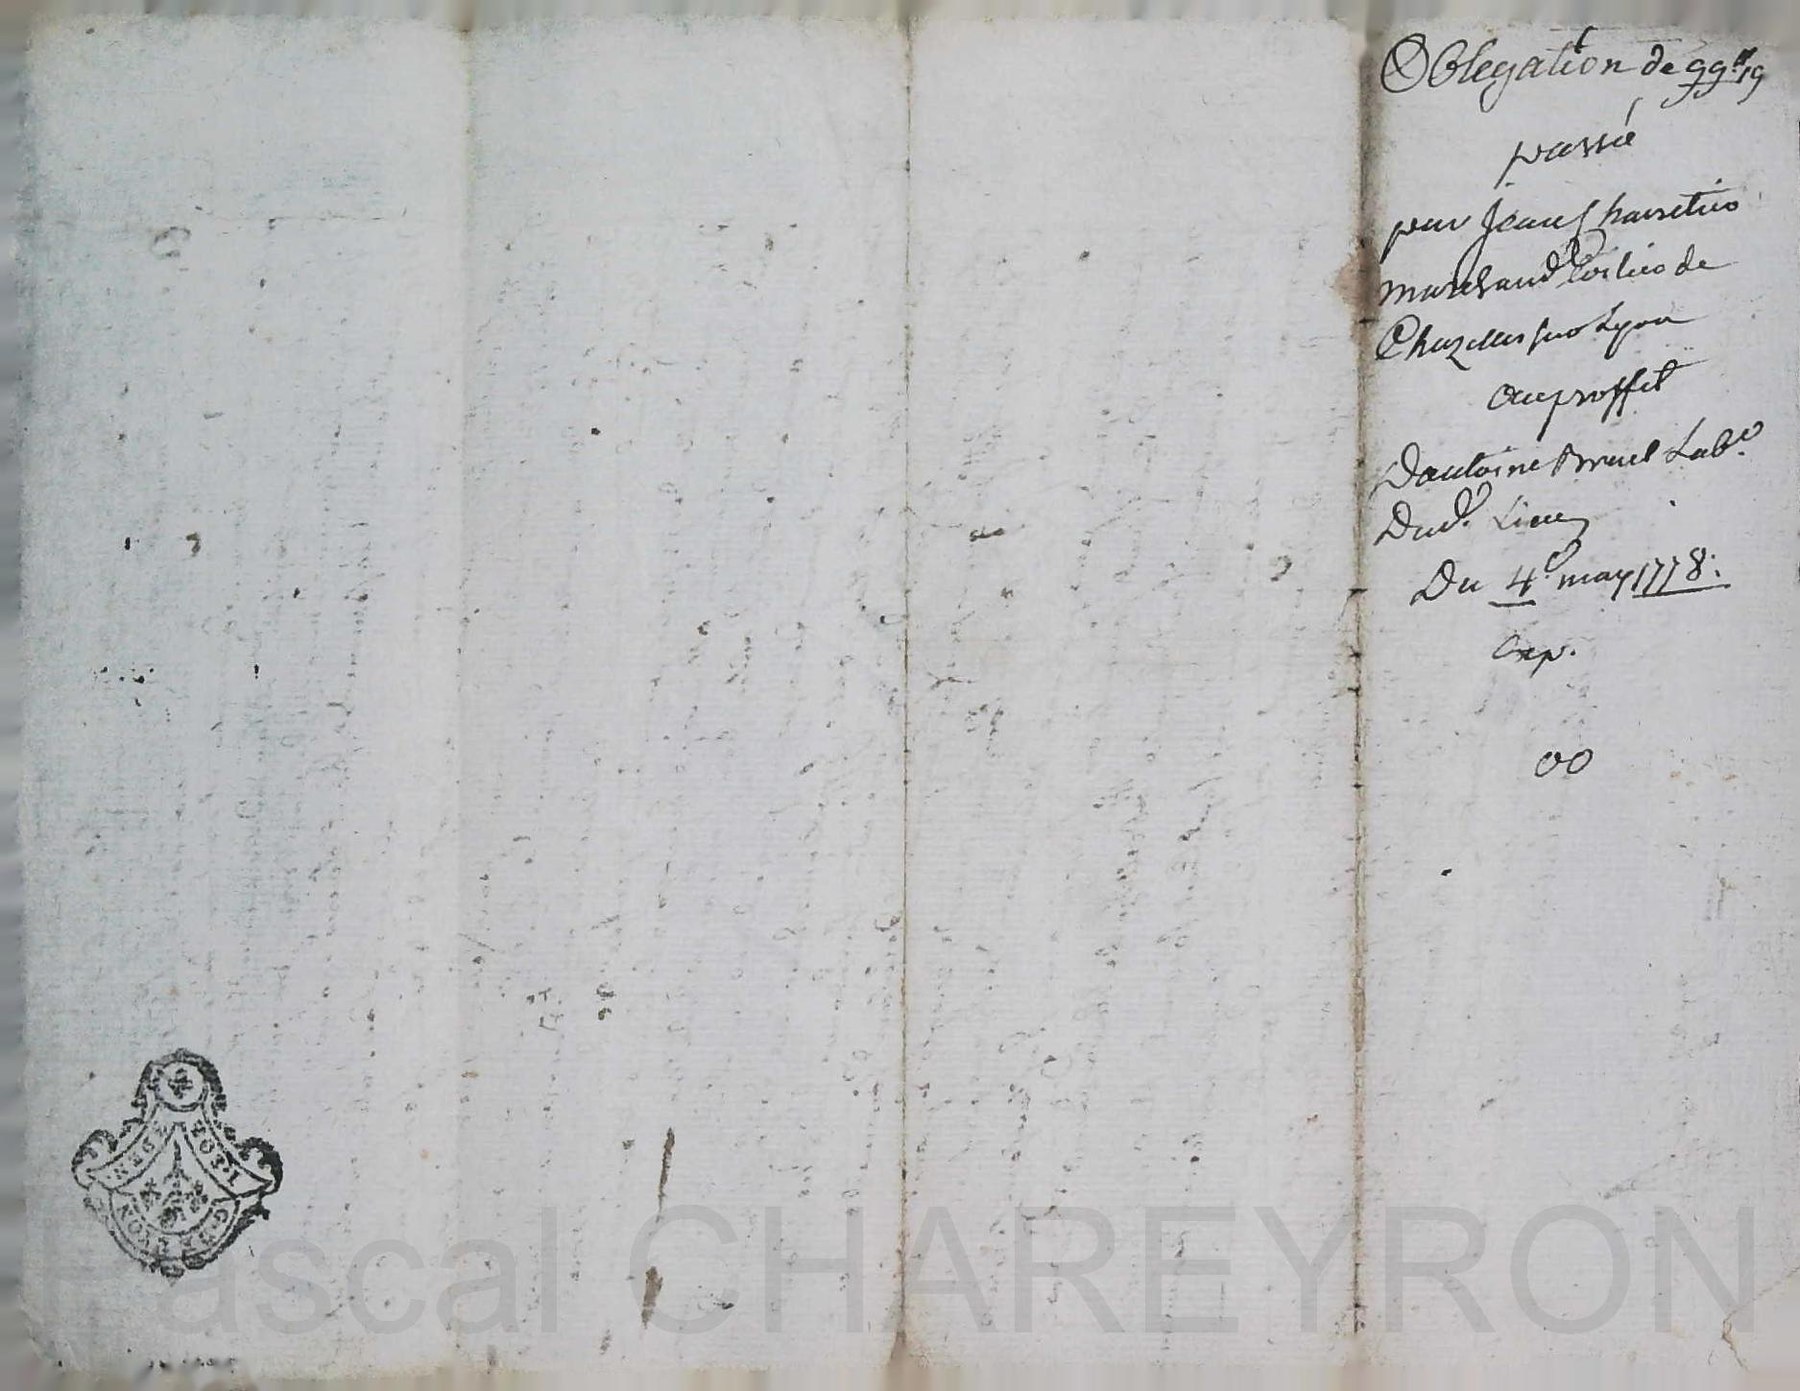 Oblegation de 99# 19
passé
par Jean
marchand de
Chazelles sur Lyon
au proffit
D'antoine Bruel Lab.r
Dud. Lieu
Du 4e may 1778:
Exp.
GEN
LYON
Pascal CHAREYRON